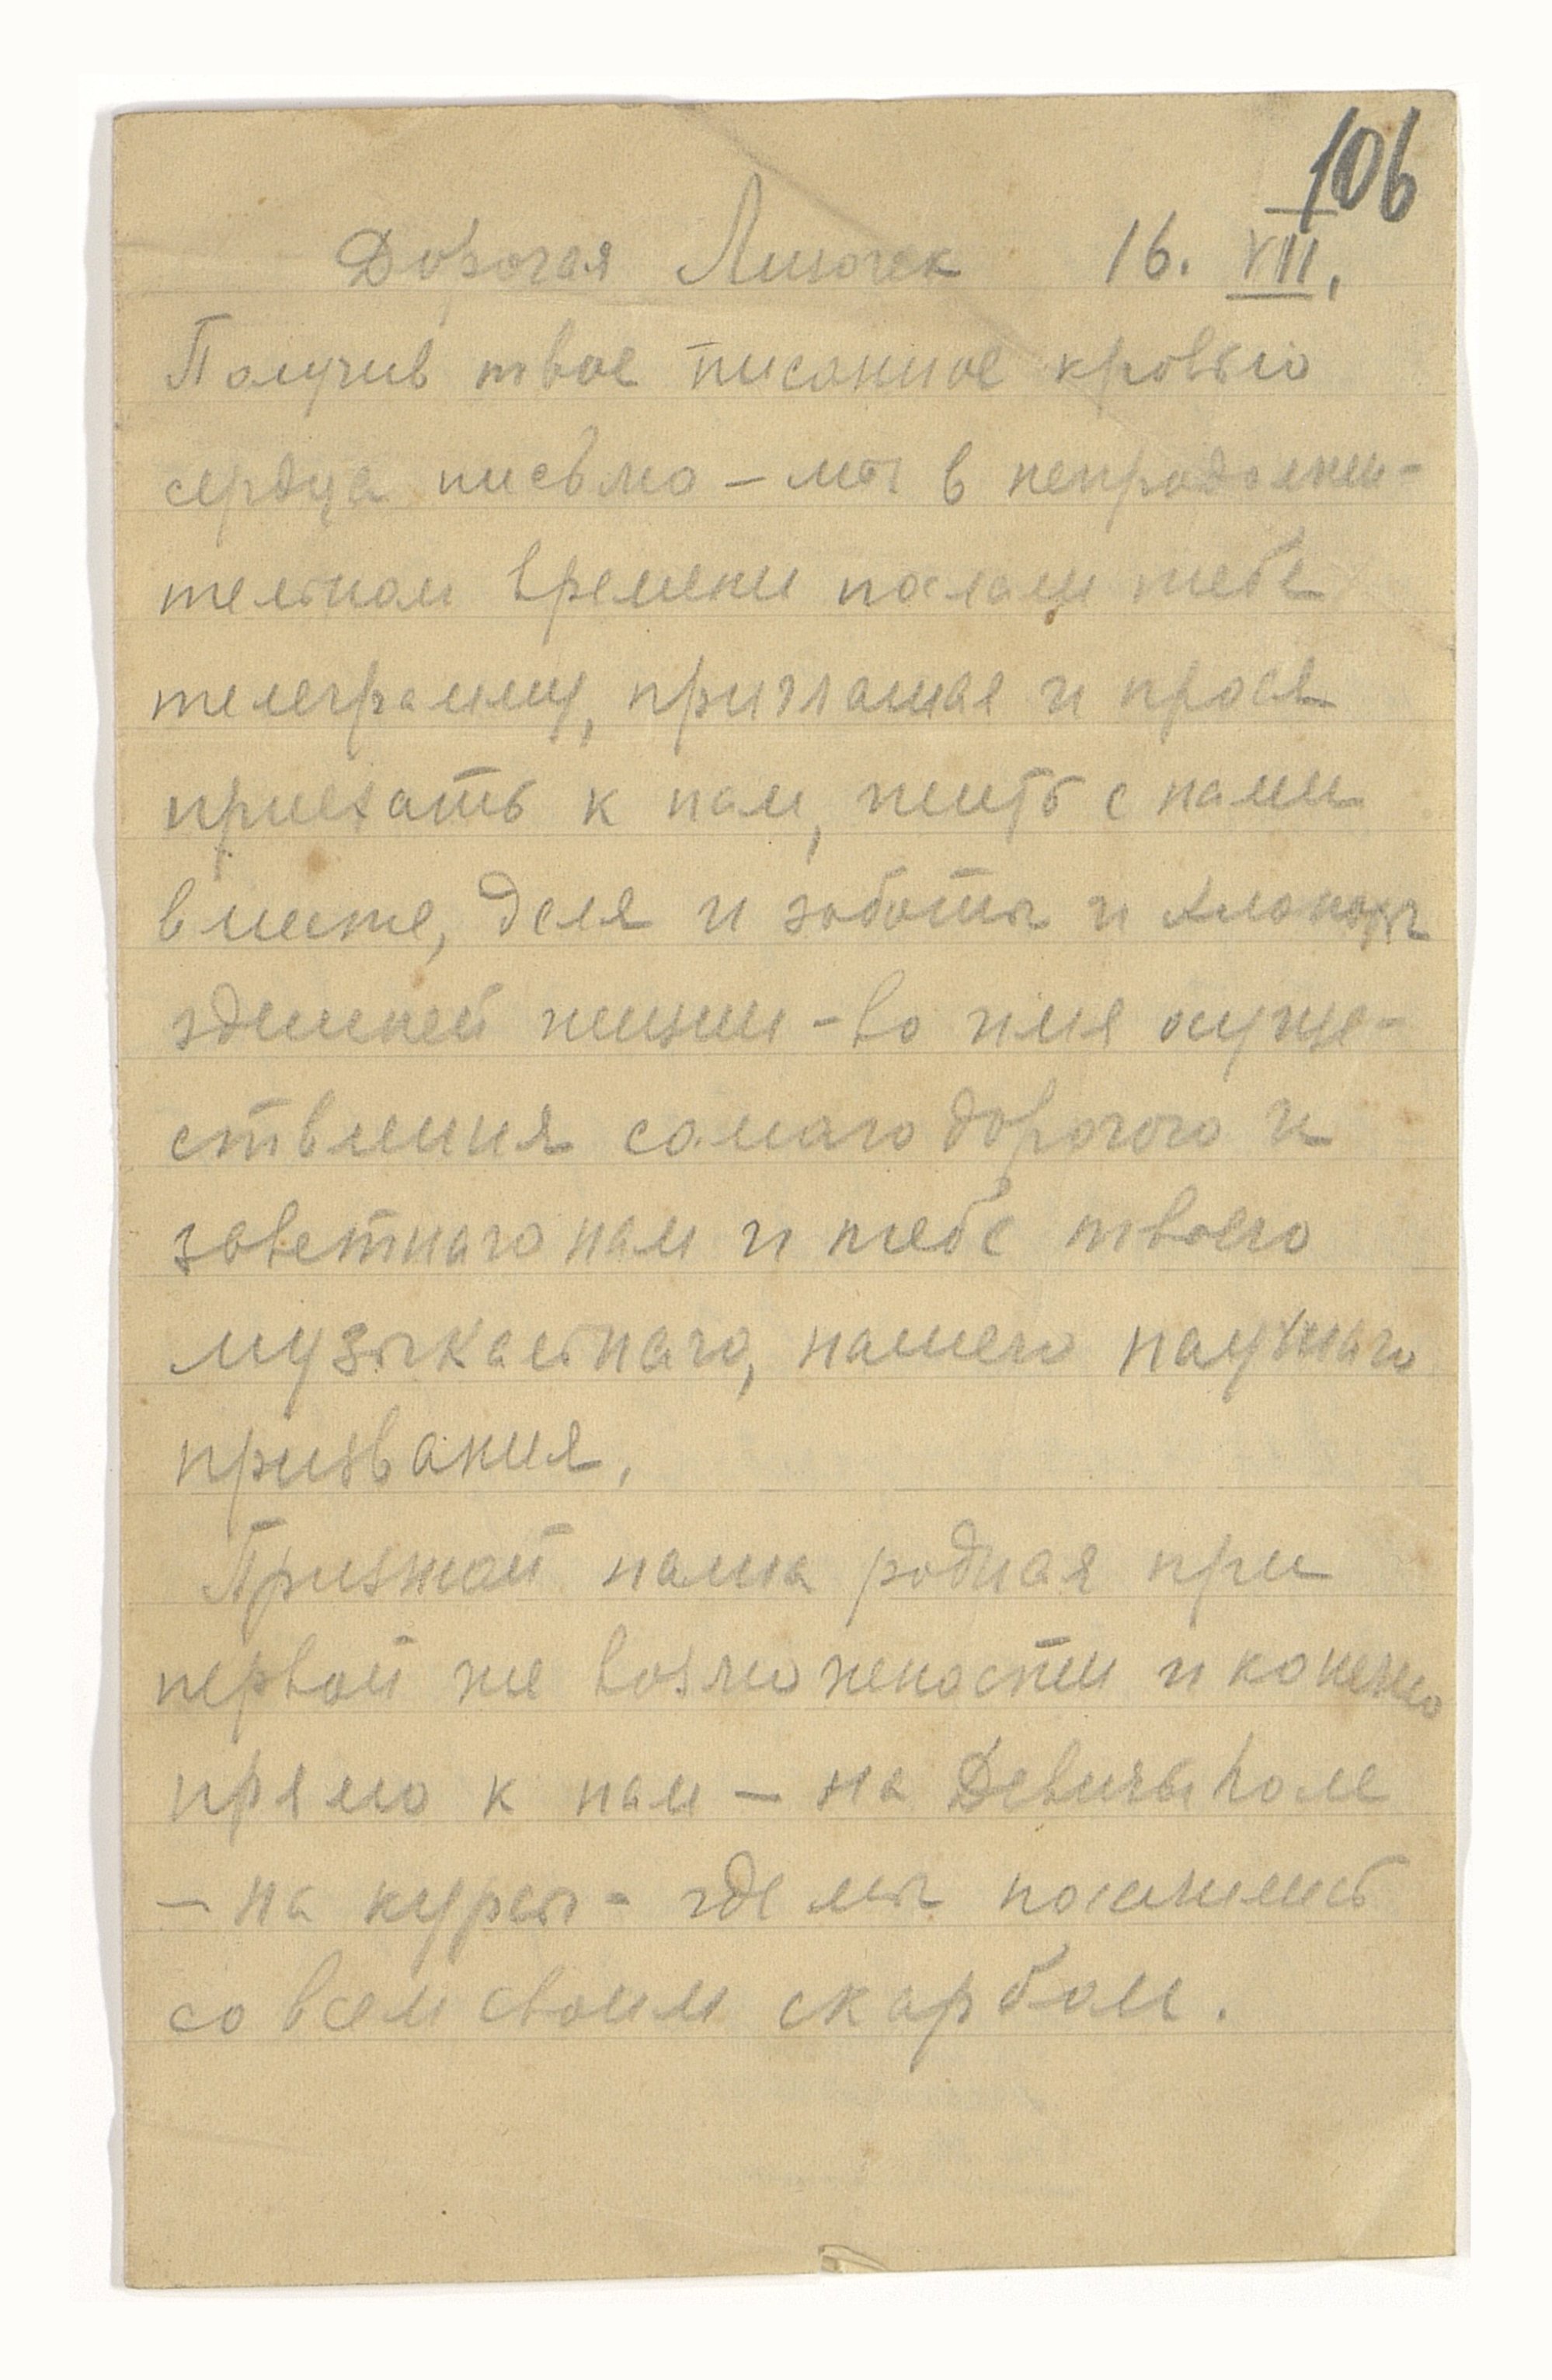 106
Дорогая Лизочек 16. VII.
Получив твое писанное кровью
сердца письмо – мы в непродолжи-
тельном времени послали тебе
телеграмму, приглашая и прося
приехать к нам, жить с нами
вместе, деля и заботы и хлопоты
здешней жизни – во имя осуще-
ствления самого дорогого и
заветнаго нам и тебе твоего
музыкальнаго, нашего научнаго
призвания.
Приезжай наша родная при
первой же возможности и конечно
прямо к нам – на Девичье поле
– на курсы – где мы поселились
со всем своим скарбом.